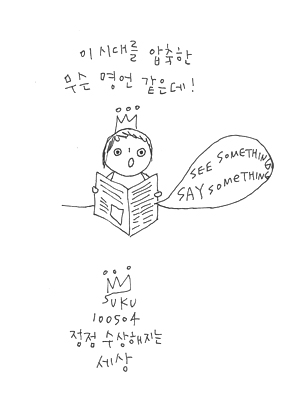 이 시대를 압축한
무슨 명언 같은데!
SEE SOMETHING
SAY SOMETHING
SUKU
100504
점점 수상해지는
세상